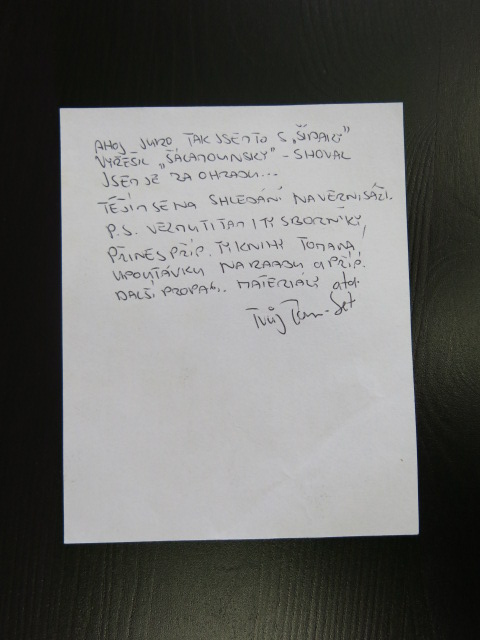 AHOJ JURO, TAK JSEM TO S „ŠÍPAŘI"
VYŘEŠIL „ŠALAMOUNSKY" - SHOVAL
JSEM JE ZA OHRADU...
TĚŠÍM SE NA SHLEDÁNÍ NA VERNISÁŽI.
P.S. VEZMU TI TAM I TY SBORNÍKY,
PŘINES PŘÍP. TY KNIHY TOMANA,
UPOUTÁVKU NA a PŘÍP.
DALŠÍ PROPAG. MATERIÁLY atd.
Tvůj